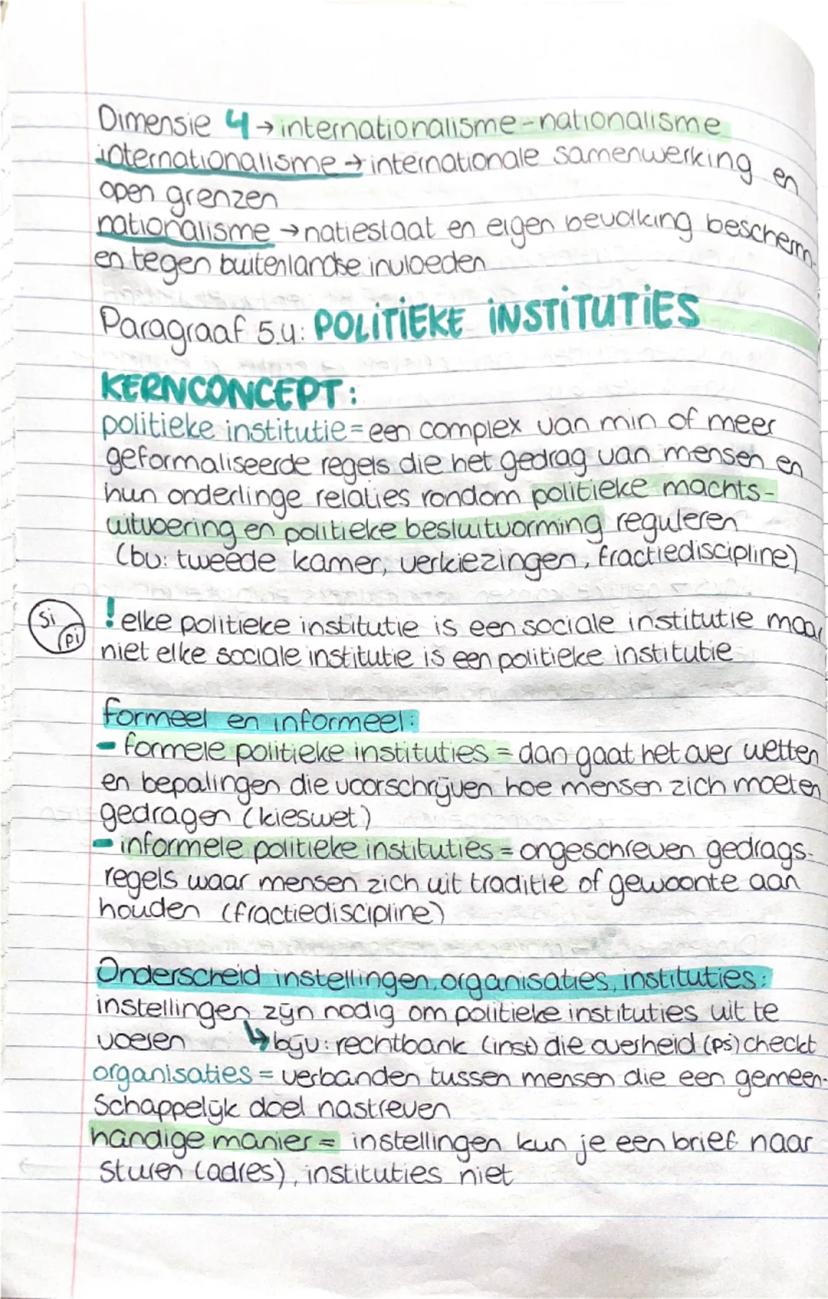 Dimensie 4 → internationalisme - nationalisme
internationalisme → internationale samenwerking en
open grenzen
nationalisme → natiestaat en eigen bevolking bescherm-
en tegen buitenlandse invloeden
Paragraaf 5.4: POLITIEKE INSTITUTIES
KERNCONCEPT:
politieke institutie = een complex van min of meer
geformaliseerde regels die het gedrag van mensen en
hun onderlinge relaties rondom politieke machts-
uitvoering en politieke besluitvorming reguleren
(bv: tweede kamer, verkiezingen, fractiediscipline)
Si
pi
! elke politieke institutie is een sociale institutie maar
niet elke sociale institutie is een politieke institutie
formeel en informeel:
- formele politieke instituties = dan gaat het over wetten
en bepalingen die voorschrijven hoe mensen zich moeten
gedragen (kieswet)
- informele politieke instituties = ongeschreven gedrags-
regels waar mensen zich uit traditie of gewoonte aan
houden (fractiediscipline)
Onderscheid instellingen, organisaties, instituties:
instellingen zijn nodig om politieke instituties uit te
voeren ↳ bijv: rechtbank (inst) die overheid (ps) checkt
organisaties = verbanden tussen mensen die een gemeen-
schappelijk doel nastreven
handige manier = instellingen kun je een brief naar
sturen (adres), instituties niet